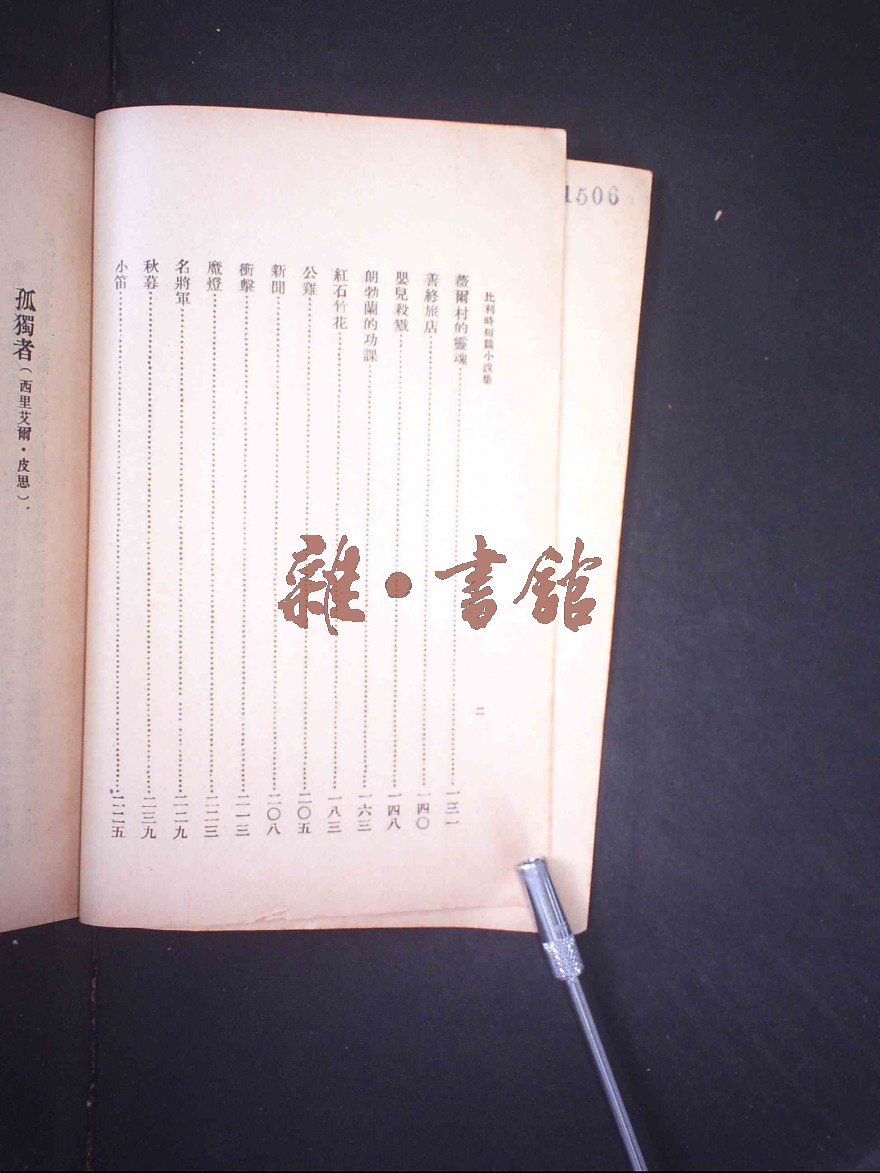 1506
比利時短篇小說集
二
薇爾村的靈魂 一三一
善終旅店 一四〇
嬰兒殺戮 一四八
朗勃蘭的功課 一六三
紅石竹花 一八三
公雞 二〇五
新聞 二〇八
衝擊 二一三
魔燈 二二三
名將軍 二二九
秋暮 二三九
小笛
孤獨者(西里艾爾·皮思)
雜·書館